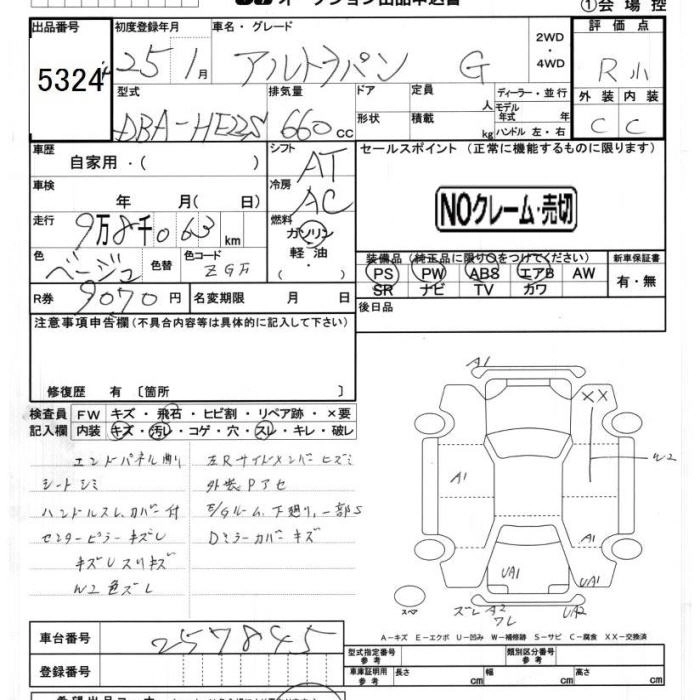 ①会場控
出品番号
5324
初度登録年月
25 1月
車名・グレード
アルトラパン G
2WD
・
4WD
評価点
R小
型式
DBA-HE22S
排気量
660 cc
ドア
形状
定員
人
積載
kg
ディーラー・並行
モデル
年式 年
ハンドル 左・右
外装 内装
C C
車歴
自家用・( )
シフト
AT
セールスポイント (正常に機能するものに限ります)
NOクレーム・売切
車検
年 月( 日)
冷房
AC
走行
9万8千063 km
燃料
ガソリン
軽油
・
色
ベージュ
色替
色コード
ZGF
装備品(純正品に限り○をつけてください)
PS PW ABS エアB AW
SR ナビ TV カワ
新車保証書
有・無
R券
9070円
名変期限 月 日
後日品
注意事項申告欄(不具合内容等は具体的に記入して下さい)
修復歴 有 〔箇所 〕
検査員
記入欄
FW キズ・飛石・ヒビ割・リペア跡・×要
内装 キズ・汚レ・コゲ・穴・スレ・キレ・破レ
エンドパネル曲り
シートシミ
ハンドルスレ、カバー付
センターピラーキズU
キズUスリキズ
W2色ズレ
左Rサイドメンバーヒズミ
外装Pアセ
E/Gルーム、下廻り、一部S
Dミラーカバーキズ
A1
XX
W2
A1
A1
UA1
UA1
スペア
ズレ A2
ワレ
UA2
A-キズ E-エクボ U-凹み W-補修跡 S-サビ C-腐食 XX-交換済
車台番号
257845
登録番号
型式指定番号
参考
類別区分番号
参考
車庫証明用
参考
長さ cm
幅 cm
高さ cm